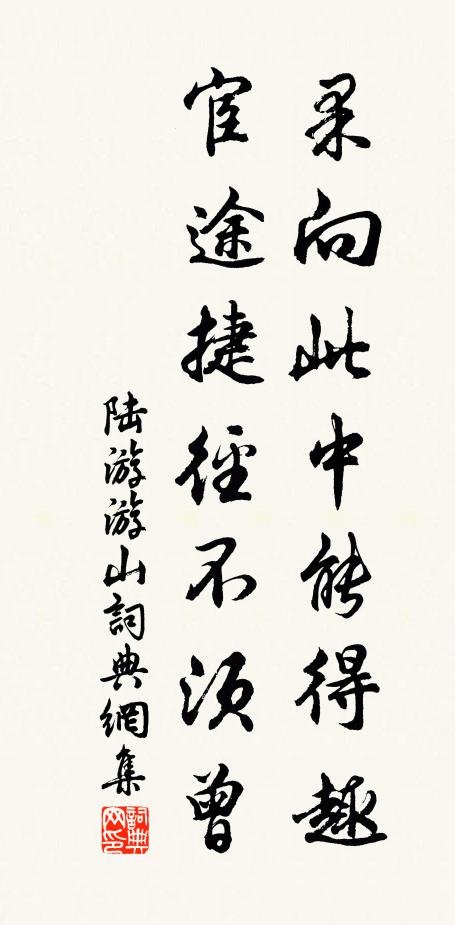 果向此中能得趣
宦途捷徑不須曾
陆游游山詞典網集
詞典网印